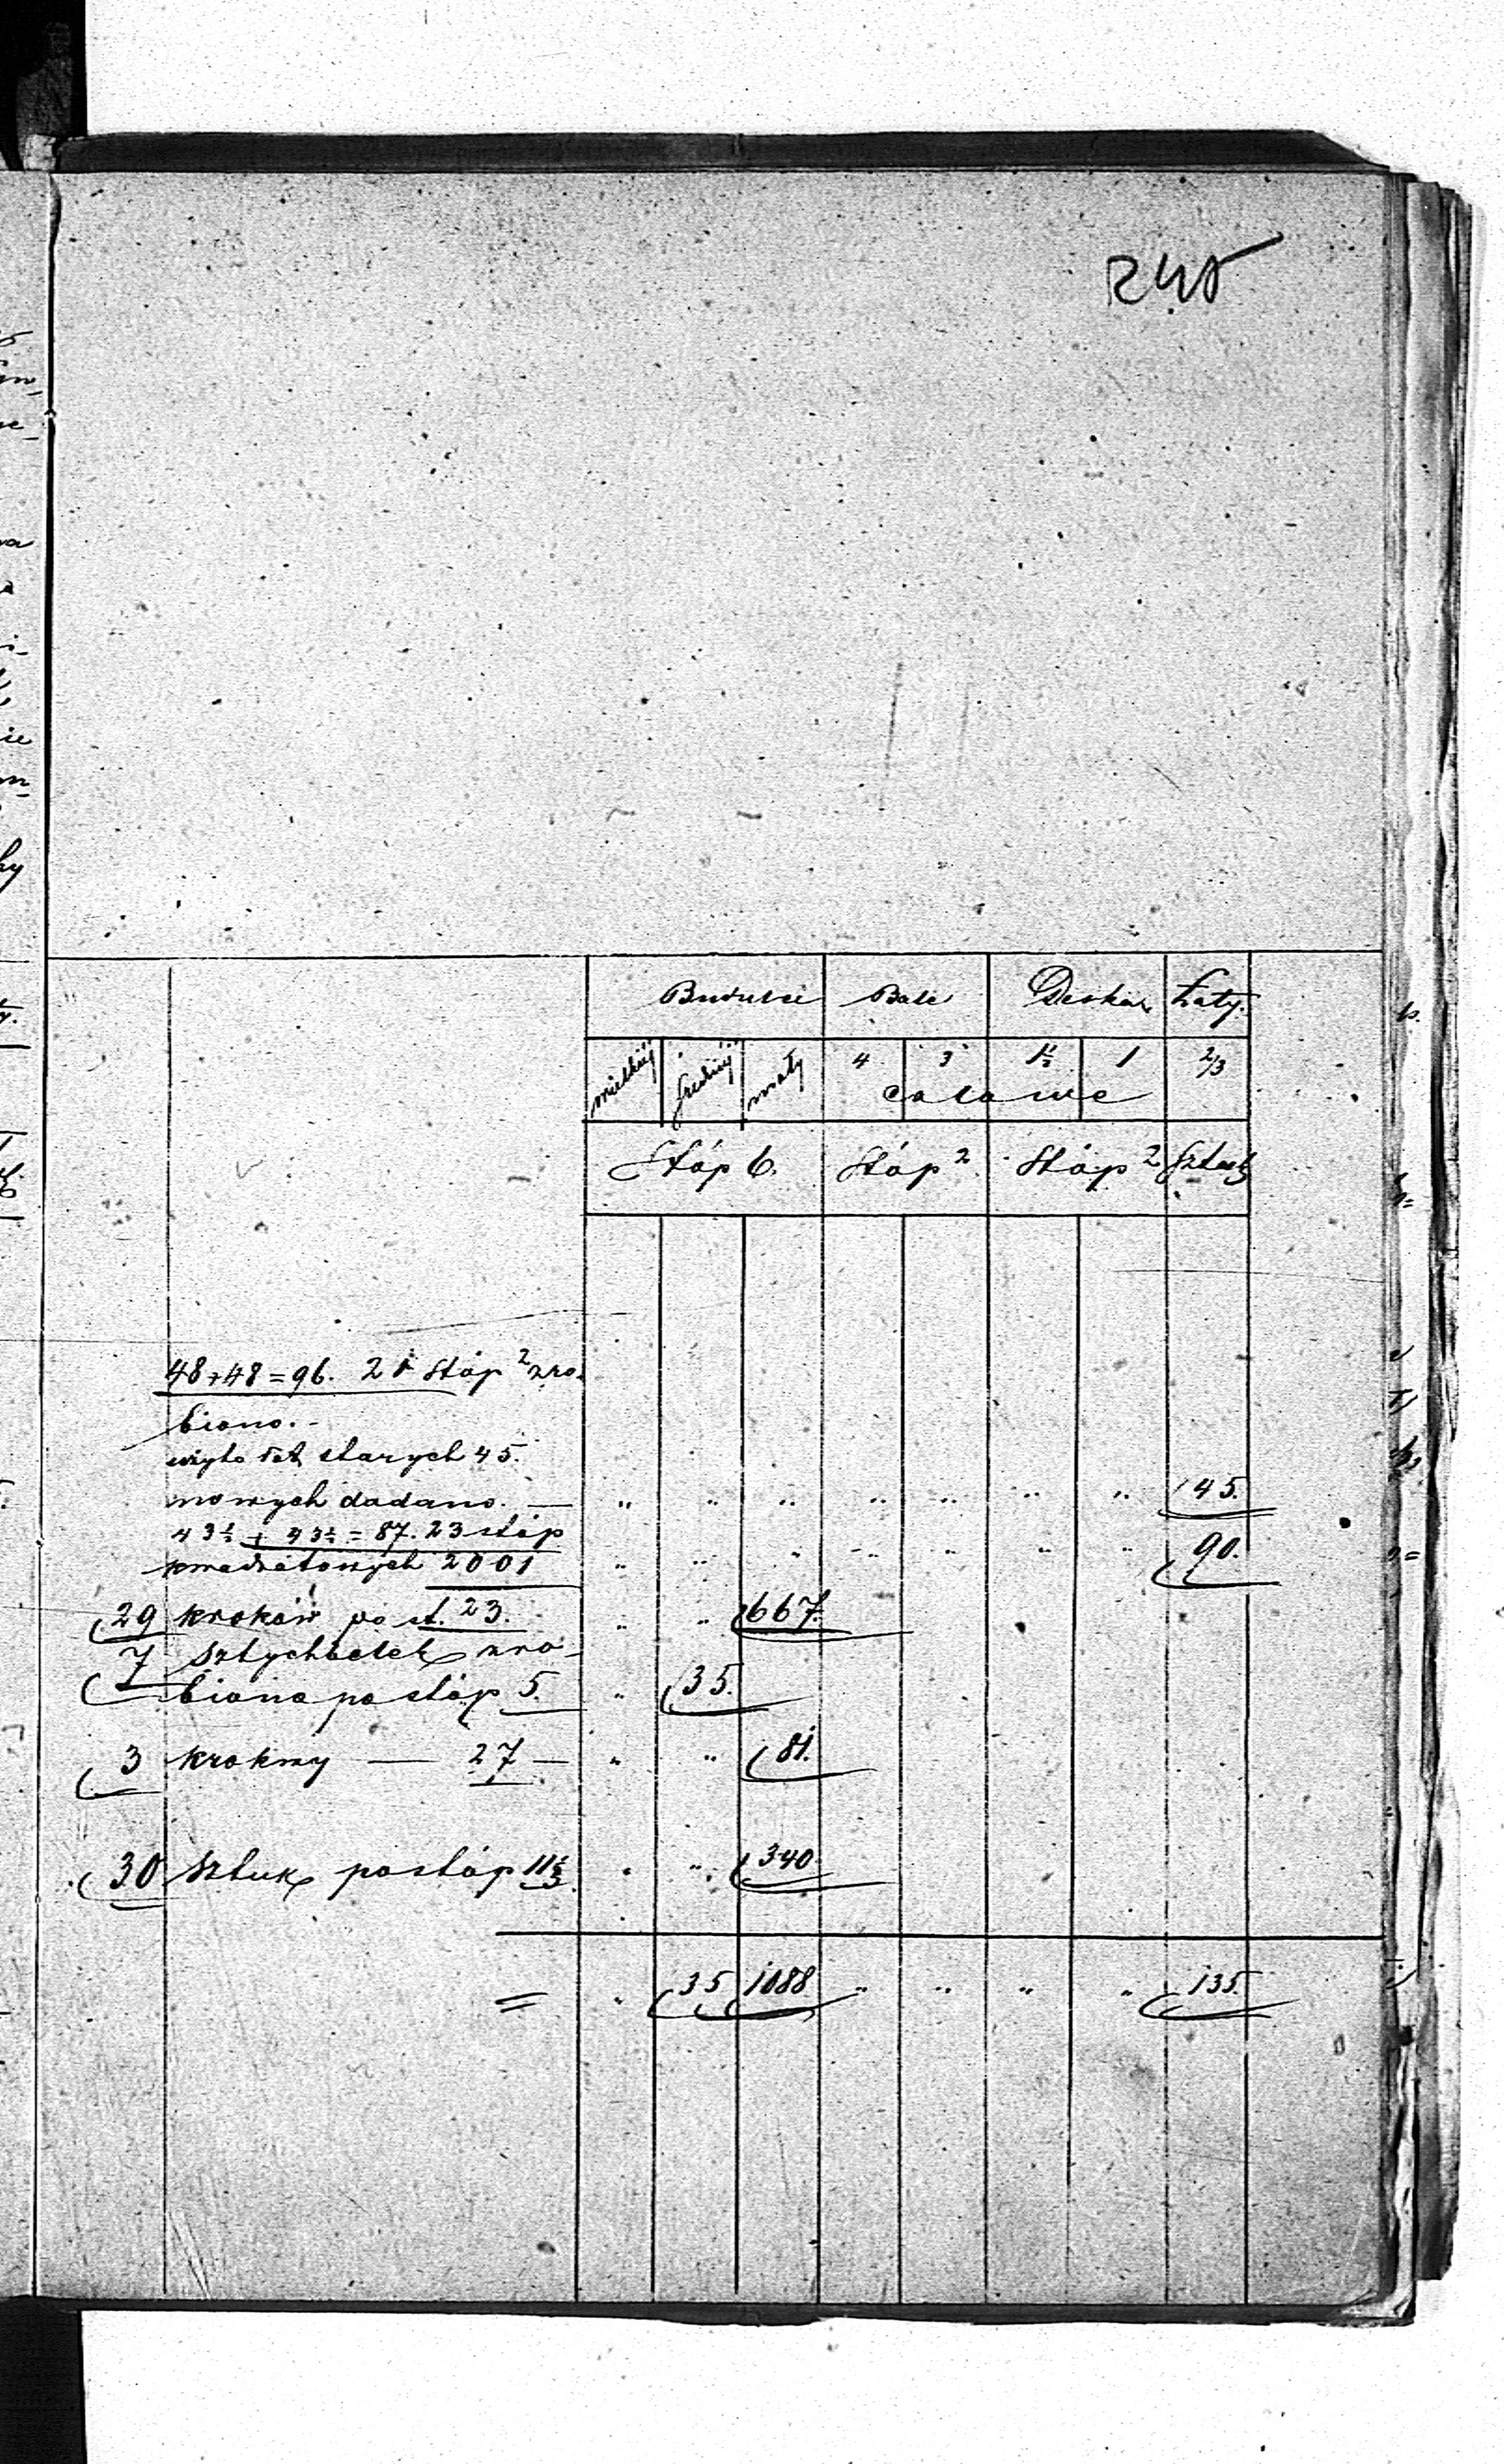 245
Budulcu Bale Desków Łaty.
wielkiéj średniéj mały 4 3 1½ 1 2/3
calowe
Stóp b. Stóp 2 Stóp 2 Sztuk
48+48=96. 21 Stóp 2 zro-
biono.-
użyto łat starych 45.
nowych dodano. — " " " " " " " 45.
43½ + 43½ = 87. 23 stóp
kwadratowych 2001 " " " " " " " 90.
29 kroków po st. 23. " " 667.
7 sztychbelek zro-
biono po stóp 5. " 35.
3 krokwy — 27 — " " 81.
30 Sztuk po stóp 11⅓ " " 340.
= " 35 1088 " " " " 135.